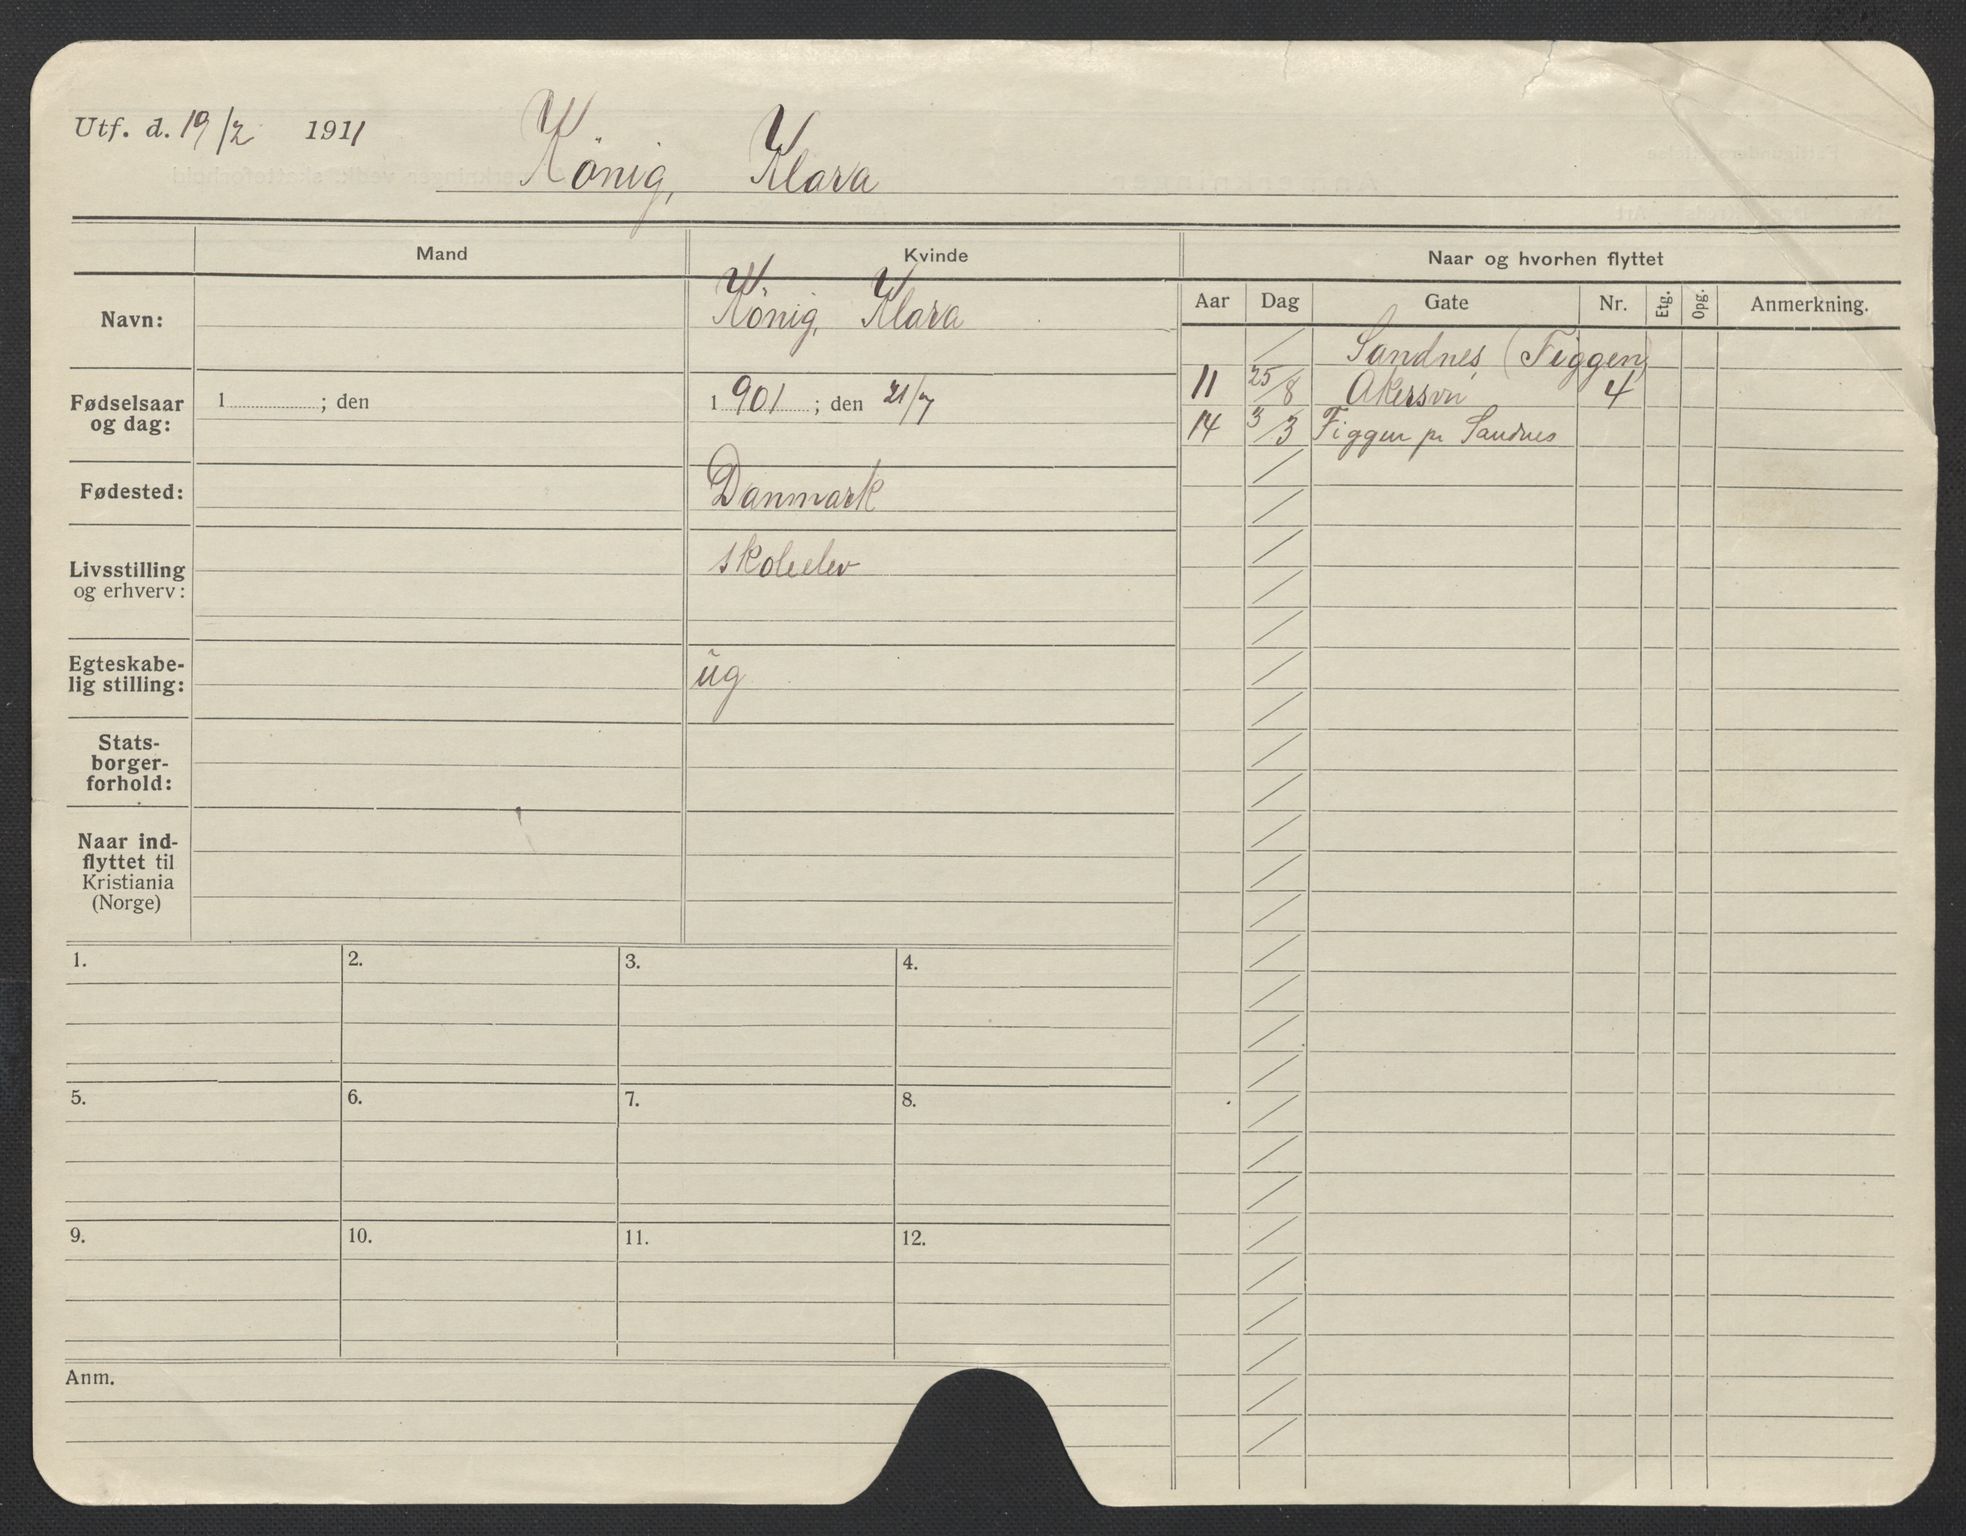 Utf. d. 19/2 1911
König, Klara
Mand
Kvinde
Naar og hvorhen flyttet
Navn:
König, Klara
Aar
Dag
Gate
Nr.
Etg.
Opg.
Anmerkning.
Sandnes (Figgen)
11 25/8 Akersvei 4
14 3/3 Figgen pr Sandnes
Fødselsaar
og dag:
1 ; den
1 901 ; den 21/7
Fødested:
Danmark
Livsstilling
og erhverv:
skoleelev
Egteskabe-
lig stilling:
ug
Stats-
borger-
forhold:
Naar ind-
flyttet til
Kristiania
(Norge)
1.
2.
3.
4.
5.
6.
7.
8.
9.
10.
11.
12.
Anm.